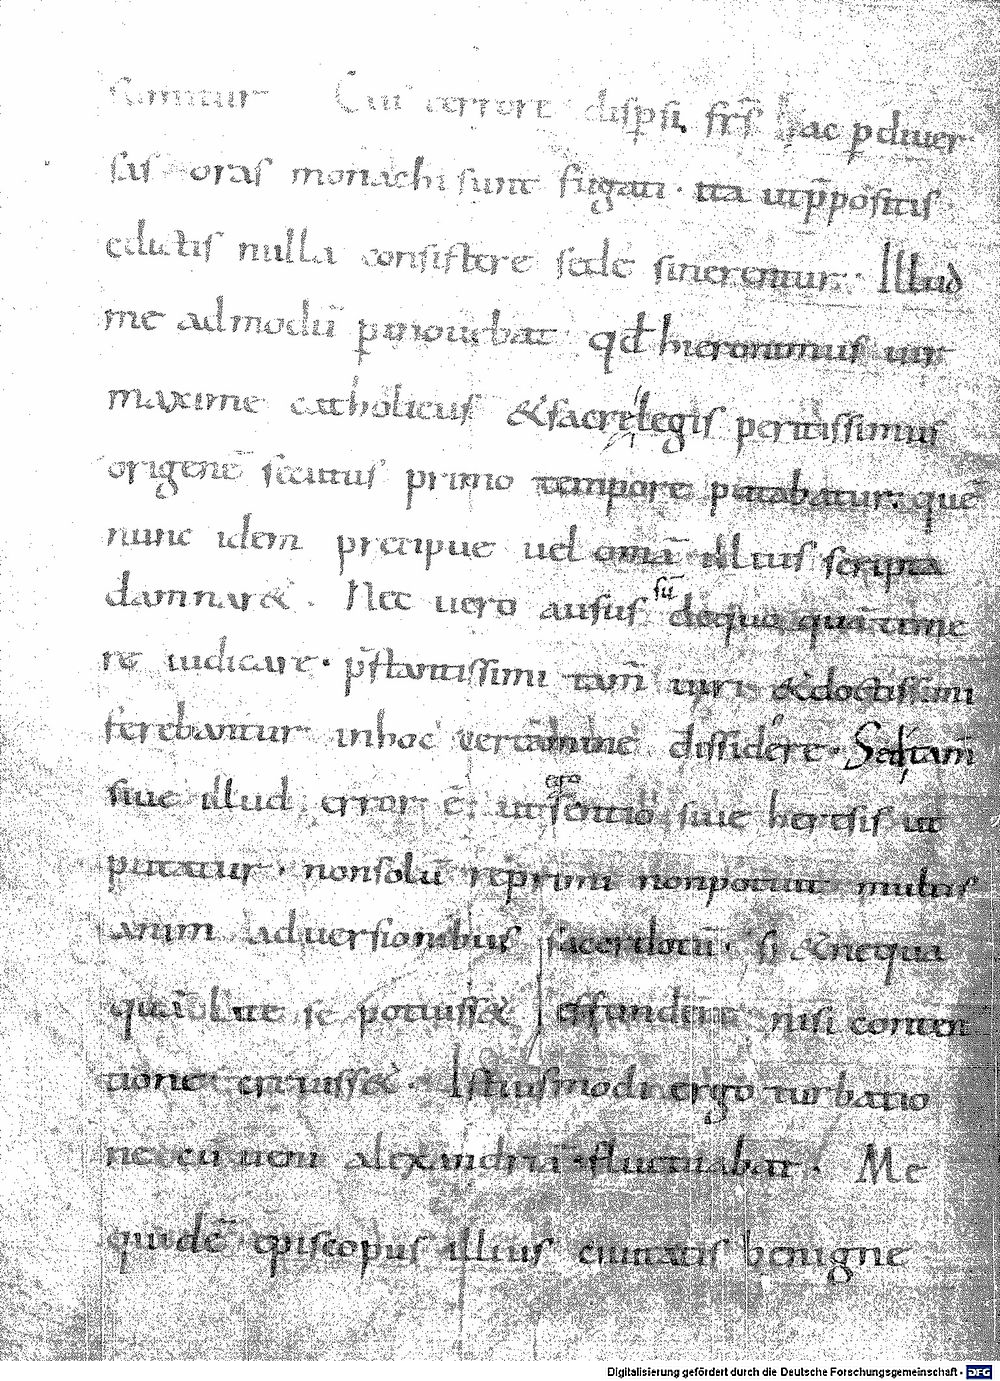 sumitur Cui terrore disp̱si, fr̄s hac p̱ diuer
sas oras monachi sunt fugati · ita ut p̄positis
edictis nulla consistere sede sinerentur · Illud
me admodū p̱mouebat qđ hieronimus uir
maxime catholicus & sacre legis peritissimus
origenē secutus primo tempore putabatur. quē
nunc idem precipue uel om̄ia illius scripta
damnar& . Nec uero ausus sū de quo quā teme
re iudicare · p̄stantissimi tam̄ uiri & doctissimi
ferebantur in hoc certamine dissidere · Sed tam̄
siue illud error ē, ut ego sentio siue heresis ut
putatur · non solū reprimi non potuit multis
anim aduersionibus sacerdotū · si & nequa
quā late se potuiss& effundere nisi conten
tione creuiss& · Istiusmodi ergo turbatio
ne cū ueni alexandria fluctuabat · Me
quidē episcopus illius ciuitatis benigne
Digitalisierung gefördert durch die Deutsche Forschungsgemeinschaft - DFG